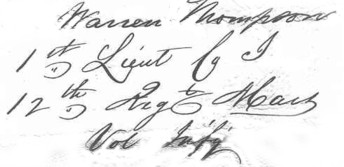 Warren Thompson
1st Lieut Co I
12th Regt Mass
Vol Infy